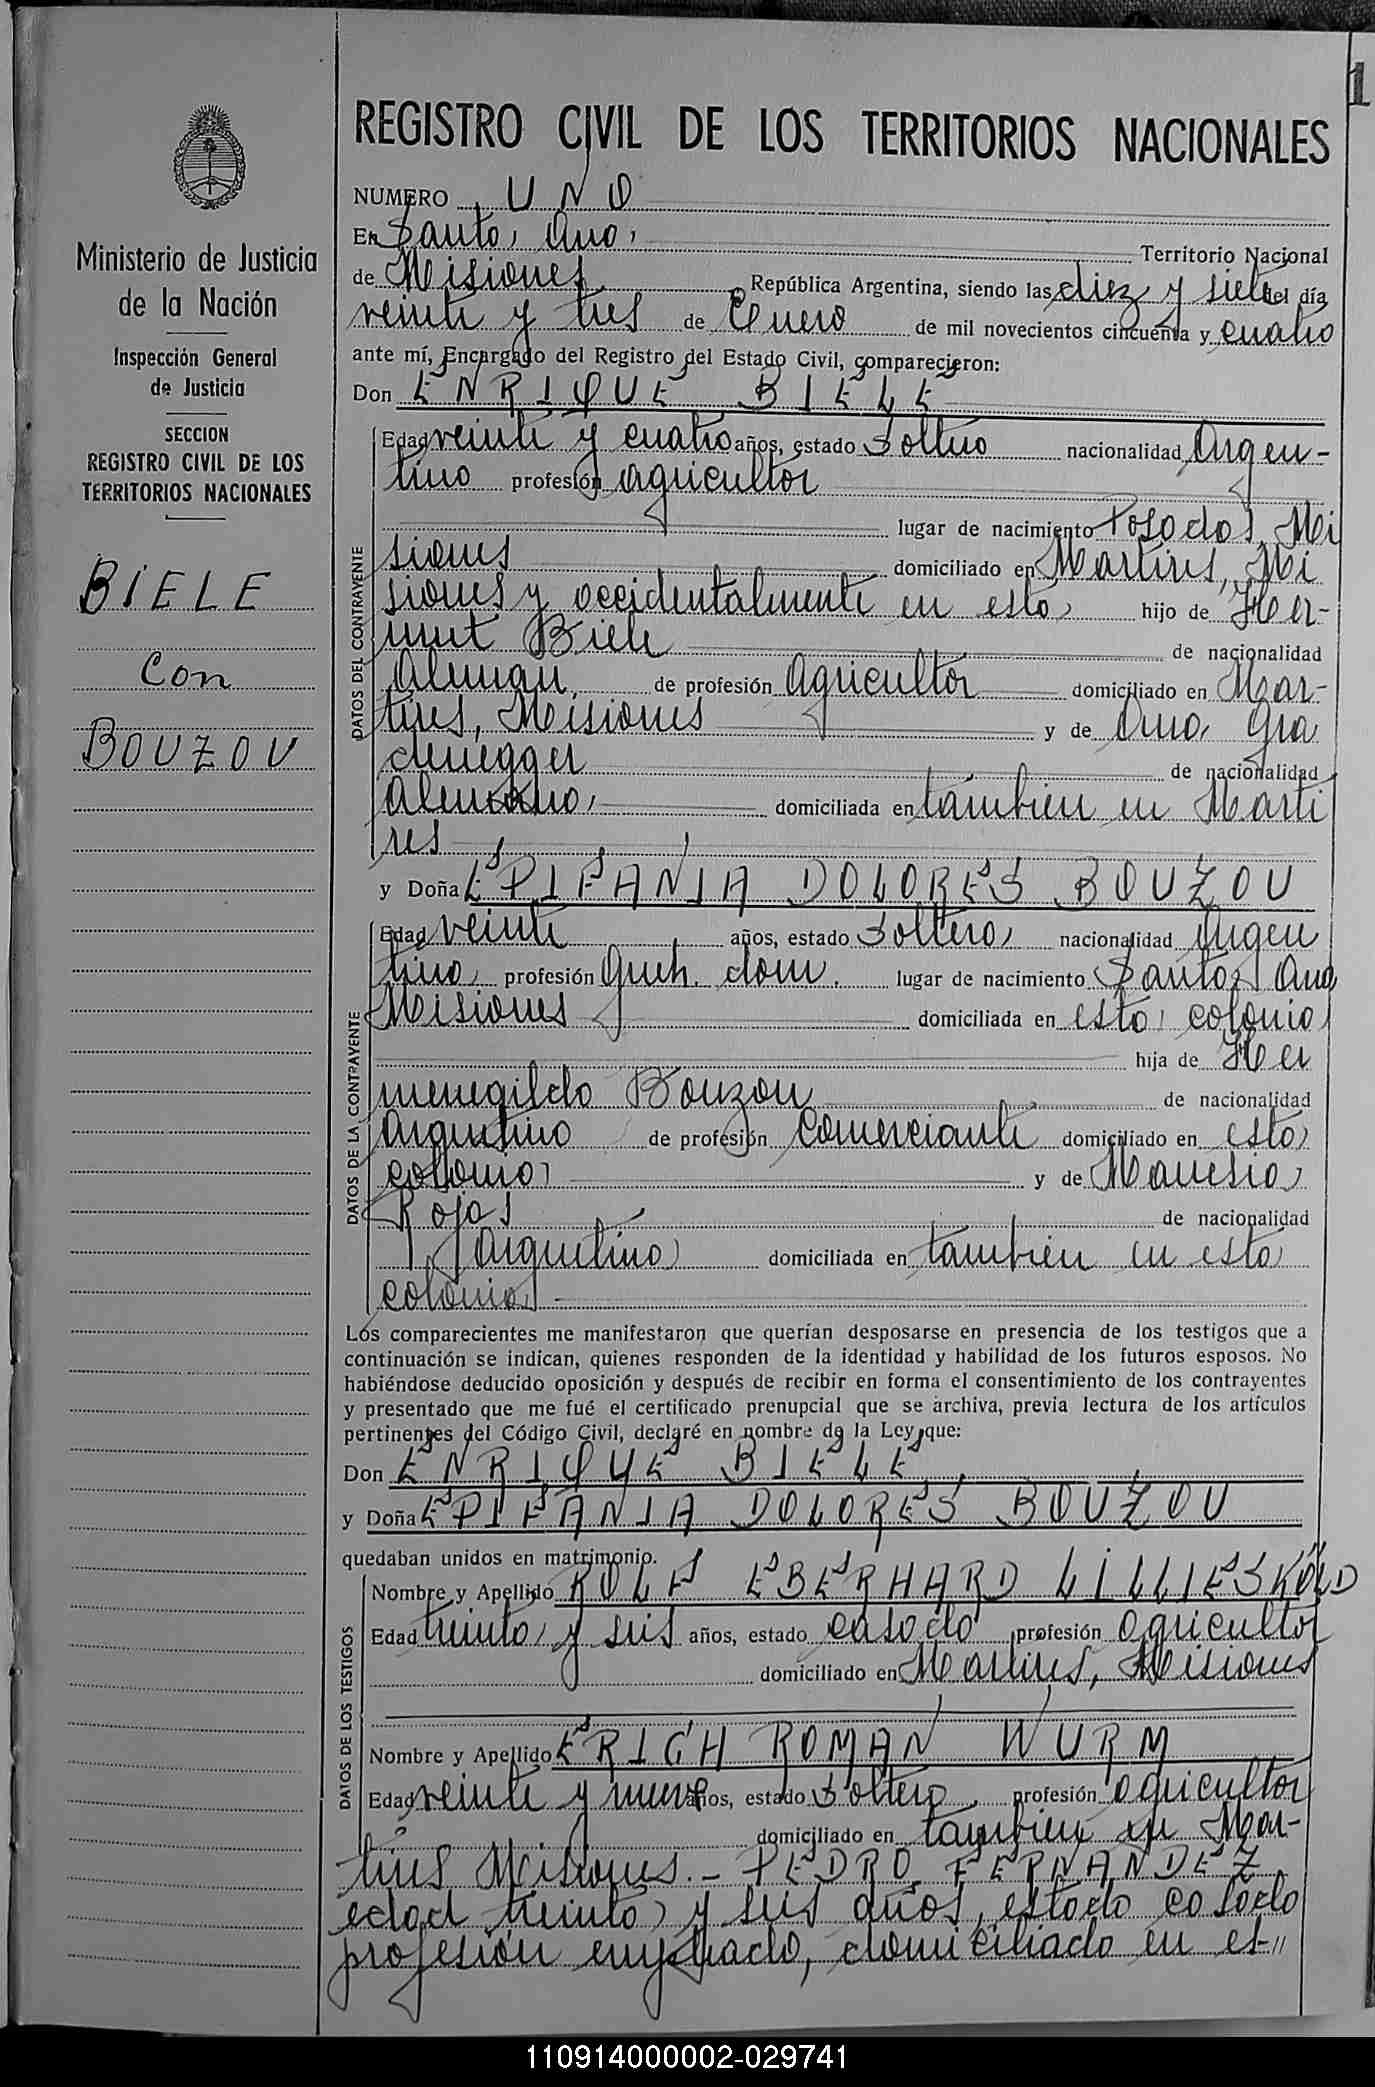 1
REGISTRO CIVIL DE LOS TERRITORIOS NACIONALES
Ministerio de Justicia
de la Nación
Inspección General
de Justicia
SECCION
REGISTRO CIVIL DE LOS
TERRITORIOS NACIONALES
BIELE
Con
BOUZOU
NUMERO UNO
En Santa Ana, Territorio Nacional
de Misiones República Argentina, siendo las diez y siete del día
veinte y tres de Enero de mil novecientos cincuenta y cuatro
ante mí, Encargado del Registro del Estado Civil, comparecieron:
Don ENRIQUE BIELE
DATOS DEL CONTRAYENTE
Edad veinte y cuatro años, estado Soltero nacionalidad Argen-
tino profesión agricultor
lugar de nacimiento Posadas, Mi
siones domiciliado en Martires, Mi
siones y accidentalmente en esta, hijo de Her-
mut Biele de nacionalidad
Aleman, de profesión Agricultor domiciliado en Mar-
tires, Misiones y de Ana Gra
denegger de nacionalidad
Alemana, domiciliada en tambien en Marti
res
y Doña EPIFANIA DOLORES BOUZOU
DATOS DE LA CONTRAYENTE
Edad veinte años, estado Soltera, nacionalidad Argen
tina, profesión Queh. dom. lugar de nacimiento Santa Ana
Misiones domiciliada en esta colonia,
hija de Her
menegildo Bouzou de nacionalidad
Argentino de profesión Comerciante domiciliado en esta
colonia, y de
Rojas de nacionalidad
Argentina domiciliada en tambien en esta
colonia,
Los comparecientes me manifestaron que querían desposarse en presencia de los testigos que a
continuación se indican, quienes responden de la identidad y habilidad de los futuros esposos. No
habiéndose deducido oposición y después de recibir en forma el consentimiento de los contrayentes
y presentado que me fué el certificado prenupcial que se archiva, previa lectura de los artículos
pertinentes del Código Civil, declaré en nombre de la Ley, que:
Don ENRIQUE BIELE
y Doña EPIFANIA DOLORES BOUZOU
quedaban unidos en matrimonio.
DATOS DE LOS TESTIGOS
Nombre y Apellido ROLF EBERHARD LILLIESKÖLD
Edad treinta y seis años, estado casado profesión agricultor
domiciliado en Martires, Misiones
Nombre y Apellido ERICH ROMAN WURM
Edad veinte y nueve años, estado Soltero profesión agricultor
domiciliado en tambien en Mar-
tires Misiones.- PEDRO FERNANDEZ
edad treinta y seis años, estado casado
profesión empleado, domiciliado en es-//
110914000002-029741